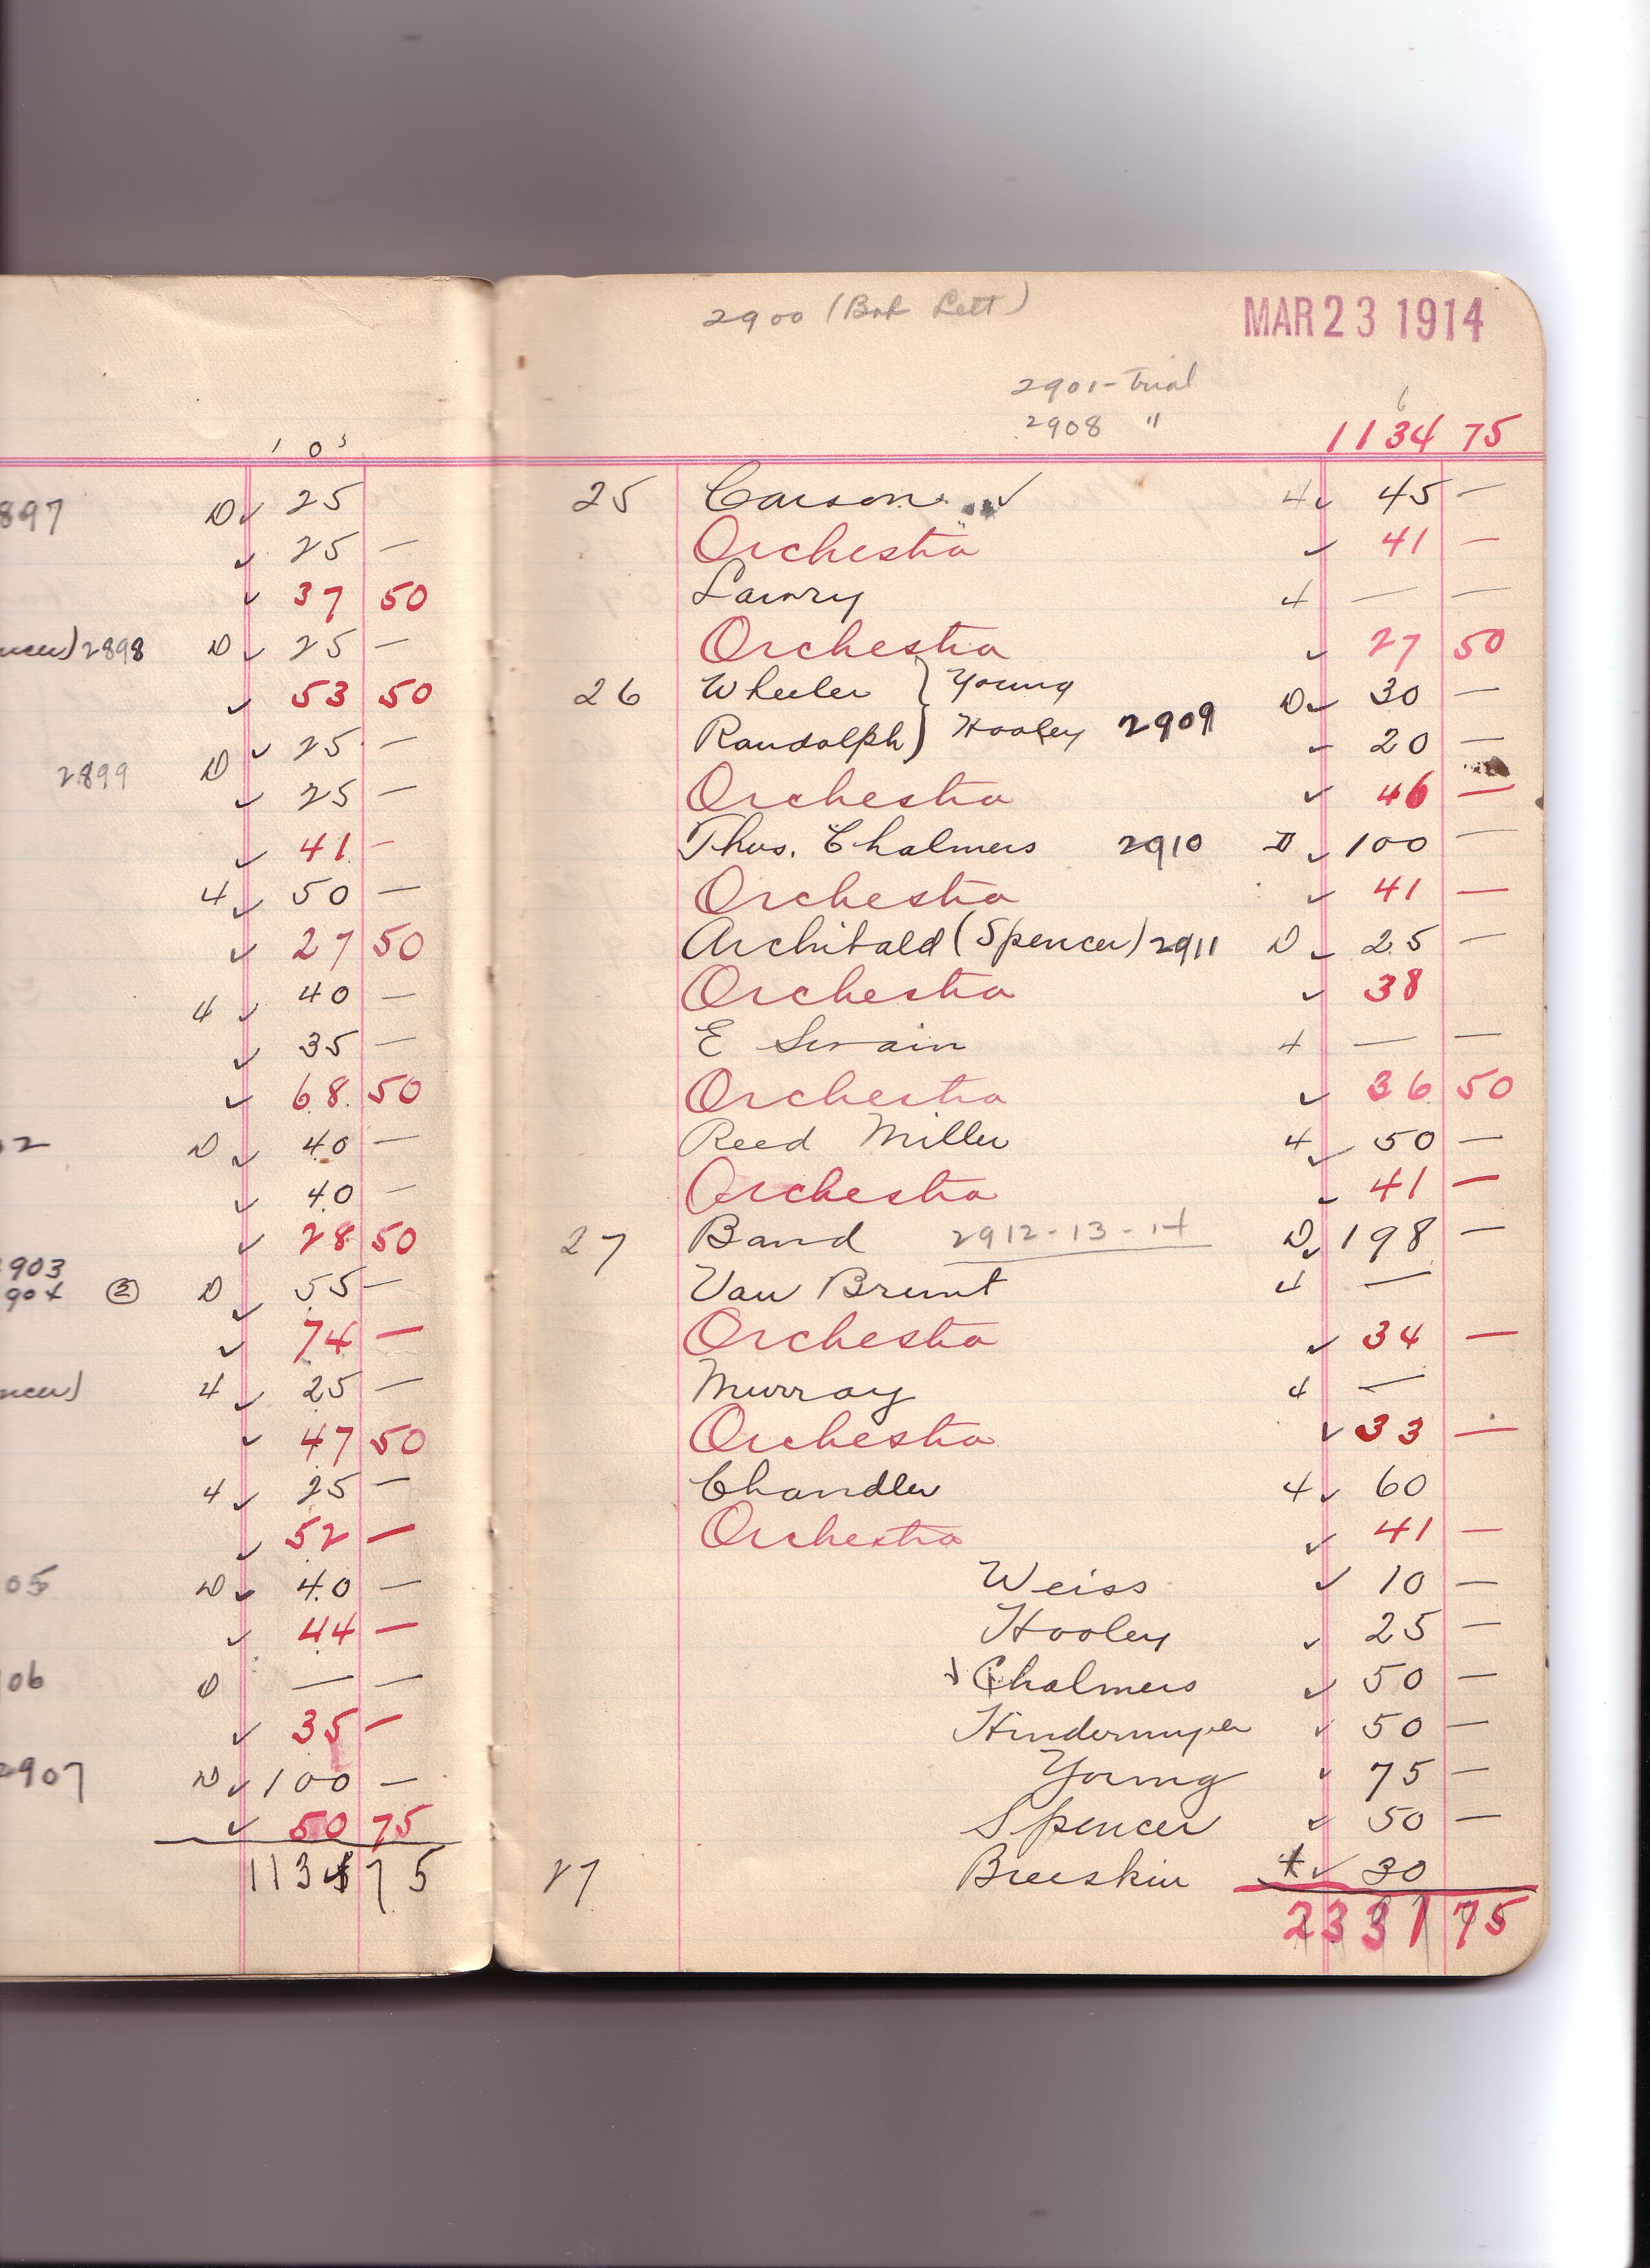 1 0 3
897 D ✓ 25
✓ 25 —
✓ 37 50
2898 D ✓ 25 —
✓ 53 50
✓ 25 —
2899 D
✓ 25 —
✓ 41 —
4 ✓ 50 —
✓ 27 50
4 ✓ 40 —
✓ 35 —
✓ 68 50
02 D ✓ 40 —
✓ 40 —
✓ 28 50
903
904 ② D ✓ 55 —
✓ 74 —
ncer) 4 ✓ 25 —
✓ 47 50
4 ✓ 25 —
✓ 52 —
05 D ✓ 40 —
✓ 44 —
06 D — —
✓ 35 —
2907 D ✓ 100 —
✓ 50 75
1134 75
2900 (Bob Lett)
MAR 23 1914
2901 - Trial
2908 "
6
1134 75
25 Carson ✓ 4 ✓ 45 —
Orchestra ✓ 41 —
Lawry 4 — —
Orchestra ✓ 27 50
26 Wheeler } Young D ✓ 30 —
Randolph } Hooley 2909 ✓ 20 —
Orchestra ✓ 46 —
Thos. Chalmers 2910 D ✓ 100 —
Orchestra ✓ 41 —
Archibald (Spencer) 2911 D ✓ 25 —
Orchestra ✓ 38
E Swain 4 — —
Orchestra ✓ 36 50
Reed Miller 4 ✓ 50 —
Orchestra ✓ 41 —
27 Band 2912-13-14 D ✓ 198 —
Van Brunt 4 —
Orchestra ✓ 34 —
Murray 4 —
Orchestra ✓ 33 —
Chandler 4 ✓ 60
Orchestra ✓ 41 —
Weiss ✓ 10 —
Hooley ✓ 25 —
✓ Chalmers ✓ 50 —
Hindermyer ✓ 50 —
Young ✓ 75 —
Spencer ✓ 50 —
27 Breeskin 4 ✓ 30
2331 75